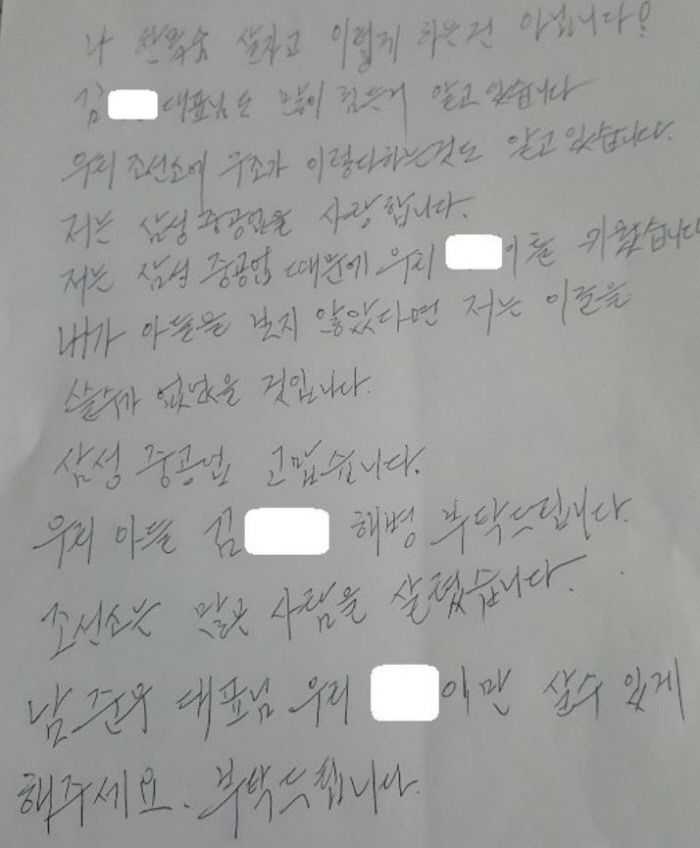 나 한목숨 살자고 이렇게 하는건 아닙니다!
김 대표님도 많이 힘든거 알고있습니다
우리 조선소에 구조가 이렇다하는것도 알고있습니다.
저는 삼성중공업을 사랑합니다.
저는 삼성중공업 때문에 우리 이를 키웠습니다
내가 아들을 보지 않았다면 저는 이글을
쓸수가 없었을 것입니다.
삼성중공업 고맙습니다.
우리 아들 김 해병 부탁드립니다.
조선소는 많은 사람을 살렸습니다.
남준우 대표님 우리 이만 살수 있게
해주세요. 부탁드립니다.